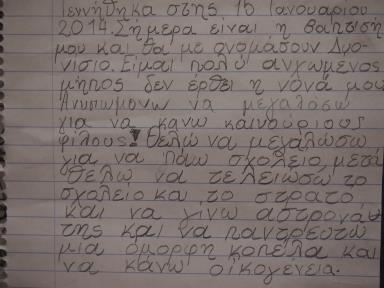 Γεννήθηκα στης 15 Ιανουαριου
2014. Σήμερα είναι η βαπτισή
μου και θα με ονομάσουν Διο-
νίσιο. Είμαι πολυ ανχωμενος
μήπος δεν έρθει η νονά μου
Ανυπωμονω να μεγαλόσω
για να κανω καινούριους
φίλους! Θελω να μεγαλώσω
για να παω σχολειο, μετά
θελω να τελειωσω το
σχολειο και το στρατο
και να γίνω αστροναύ
της και να παντρευτω
μια όμορφη κοπέλα και
να κάνω οικογενεια.